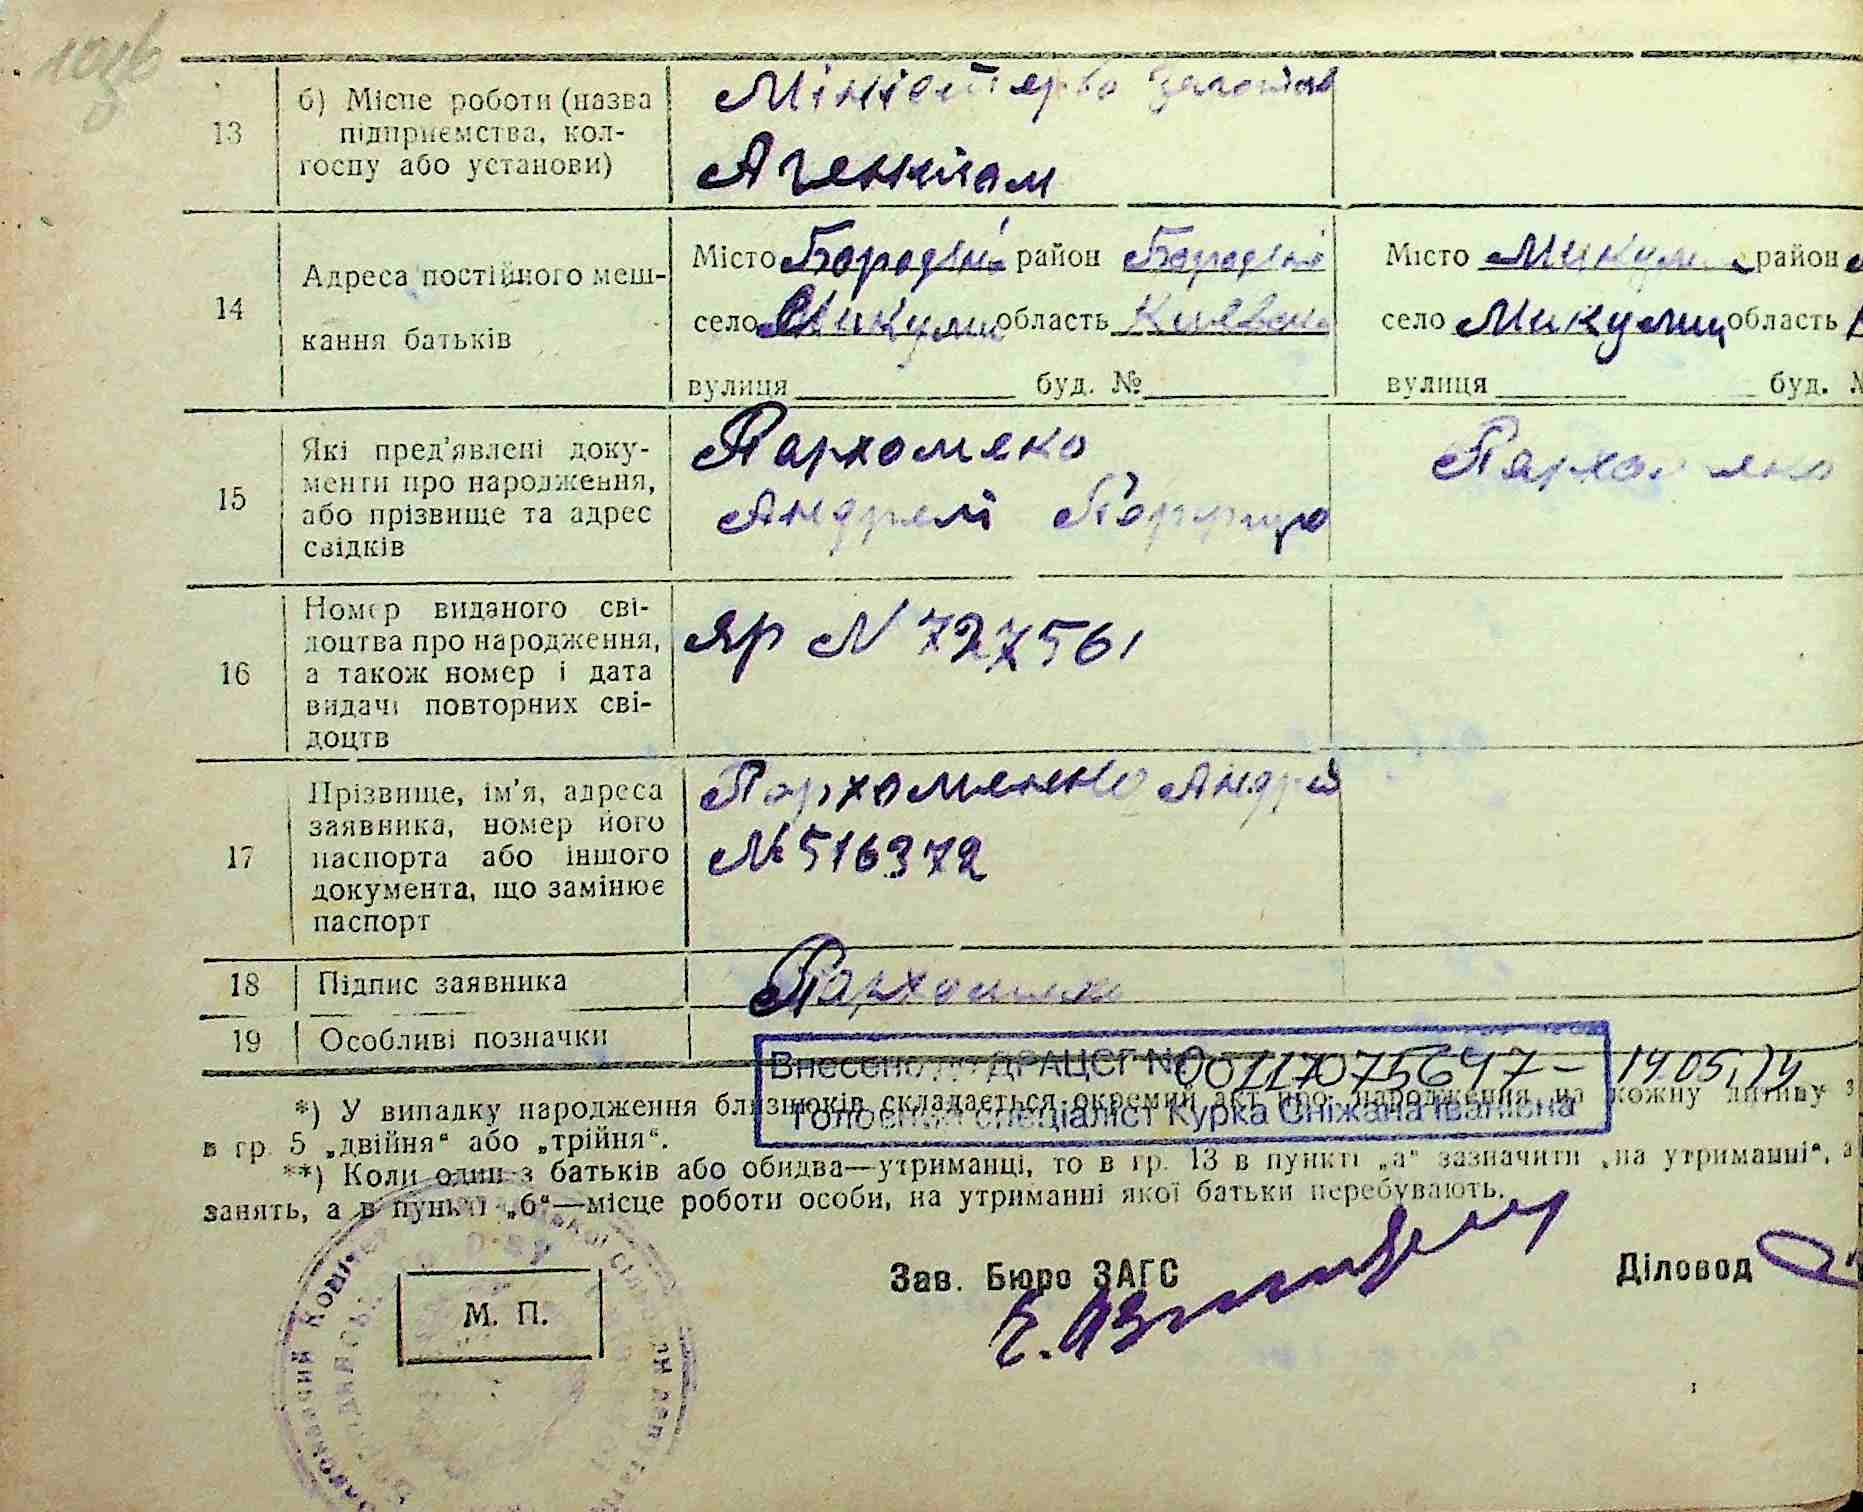 13
б) Місце роботи (назва
підприємства, кол-
госпу або установи)
Міністерво
Агенком
14
Адреса постійного меш-
кання батьків
Місто Бородян район Бородян
село Микулич область Київськ
вулиця буд. №
Місто Микулич район
село Микулич область
вулиця буд. №
15
Які пред'явлені доку-
менти про народження,
або прізвище та адрес
свідків
Пархомеко
Андрей
Пархоменко
16
Номер виданого сві-
доцтва про народження,
а також номер і дата
видачі повторних сві-
доцтв
ЯР N 727561
17
Прізвище, ім'я, адреса
заявника, номер його
паспорта або іншого
документа, що замінює
паспорт
Пархоменко Андрей
№ 516372
18
Підпис заявника
Пархоменко
19
Особливі позначки
Внесено до ДРАЦСГ № 00117075647 – 14.05.
Головний спеціаліст Курка Сніжана Іванівна
*) У випадку народження близнюків складається окремий акт про народження на кожну дитину з
в гр. 5 „двійня“ або „трійня“.
**) Коли один з батьків або обидва—утриманці, то в гр. 13 в пункті „а“ зазначити „на утриманні“, а
занять, а в пункті „б“—місце роботи особи, на утриманні якої батьки перебувають.
М. П.
Зав. Бюро ЗАГС
Діловод